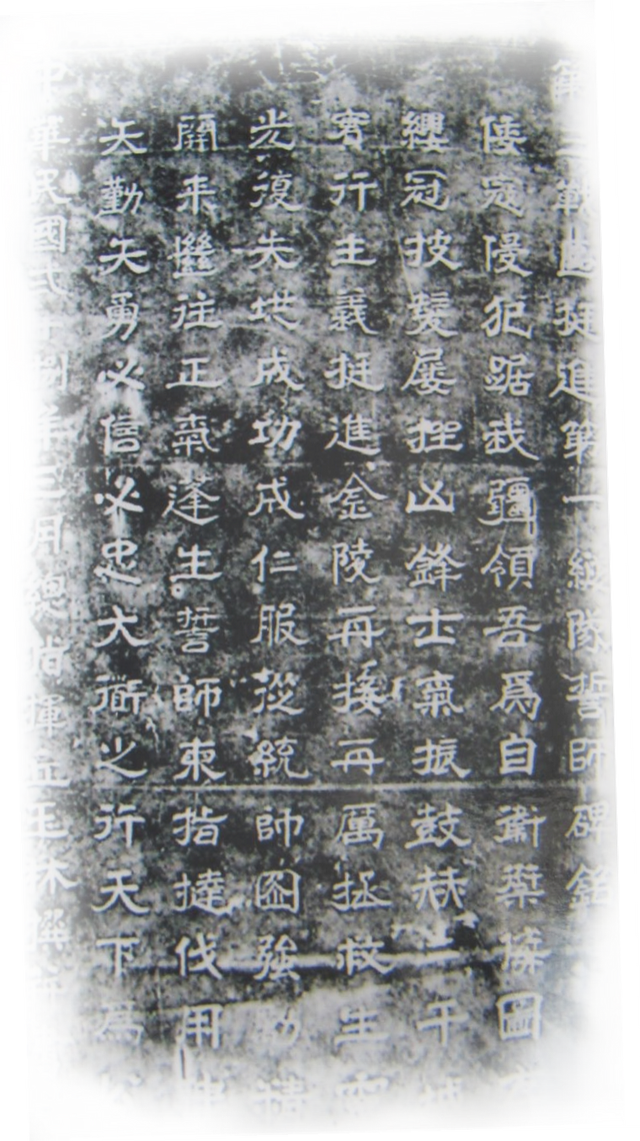 第三戰區挺進第一縱隊誓師碑銘
倭寇侵犯踞我疆領吾爲自衛圖
纓冠披髮屢挫凶鋒士氣振鼓赫干城
實行主義挺進金陵再接再厲拯救生靈
光復失地成功成仁服從統帥圖強精
開來繼往正氣蓬生誓師東指撻伐用
矢勤矢勇必信必忠大衜之行天下爲
中華民國弍十捌年三月總指揮